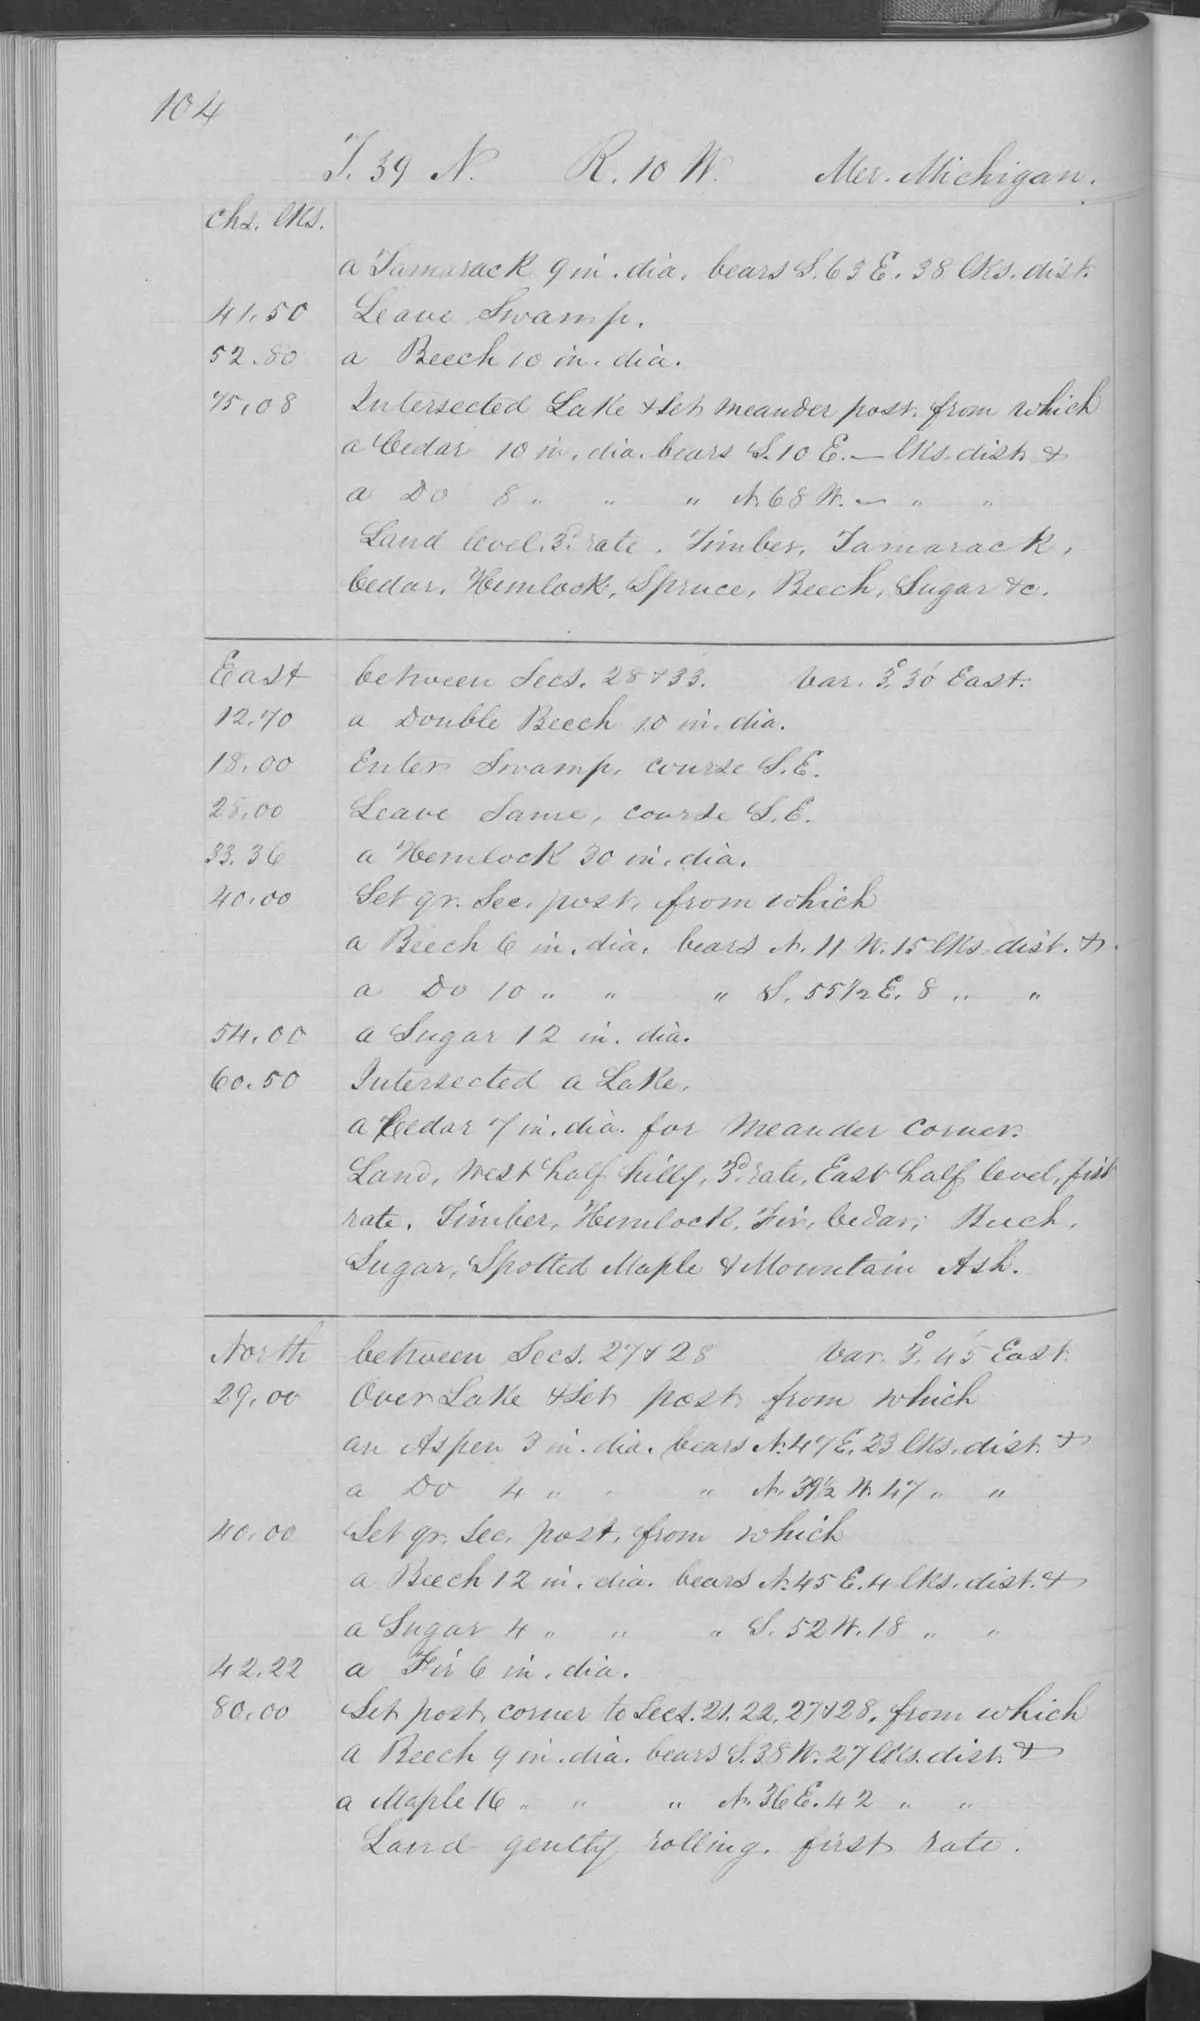 104
T. 39 N. R. 10 W. Mer. Michigan.
chs. lks.
a Tamarack 9 in. dia. bears S. 63 E. 38 lks. dist.
41.50 Leave Swamp.
52.80 a Beech 10 in. dia.
75.08 Intersected Lake & Set meander post from which
a Cedar 10 in. dia. bears S. 10 E. — lks. dist. &
a Do 8 " " " N. 68 W. — " "
Land level. 3d. rate. Timber, Tamarack,
Cedar, Hemlock, Spruce, Beech, Sugar &c.
East between Secs. 28 & 33. Var. 3° 30' East.
12.70 a Double Beech 10 in. dia.
18.00 Enter Swamp, course S.E.
28.00 Leave Same, course S.E.
33.36 a Hemlock 30 in. dia.
40.00 Set qr. Sec. post, from which
a Beech 6 in. dia. bears N. 11 W. 15 lks. dist. &
a Do 10 " " " S. 55 1/2 E. 8 " "
54.00 a Sugar 12 in. dia.
60.50 Intersected a Lake,
a Cedar 7 in. dia. for meander corner.
Land, West half hilly, 3d. rate, East half level, first
rate. Timber, Hemlock, Fir, Cedar, Beech,
Sugar, Spotted Maple & Mountain Ash.
North between Secs. 27 & 28 Var. 3° 45' East.
29.00 Over Lake & Set post from which
an Aspen 3 in. dia. bears N. 47 E. 23 lks. dist. &
a Do 4 " " " N. 39 1/2 W. 47 " "
40.00 Set qr. Sec. post, from which
a Beech 12 in. dia. bears N. 45 E. 4 lks. dist. &
a Sugar 4 " " " S. 52 W. 18 " "
42.22 a Fir 6 in. dia.
80.00 Set post, corner to Secs. 21. 22. 27 & 28. from which
a Beech 9 in. dia. bears S. 38 W. 27 lks. dist. &
a Maple 16 " " " N. 36 E. 42 " "
Land gently rolling, first rate.